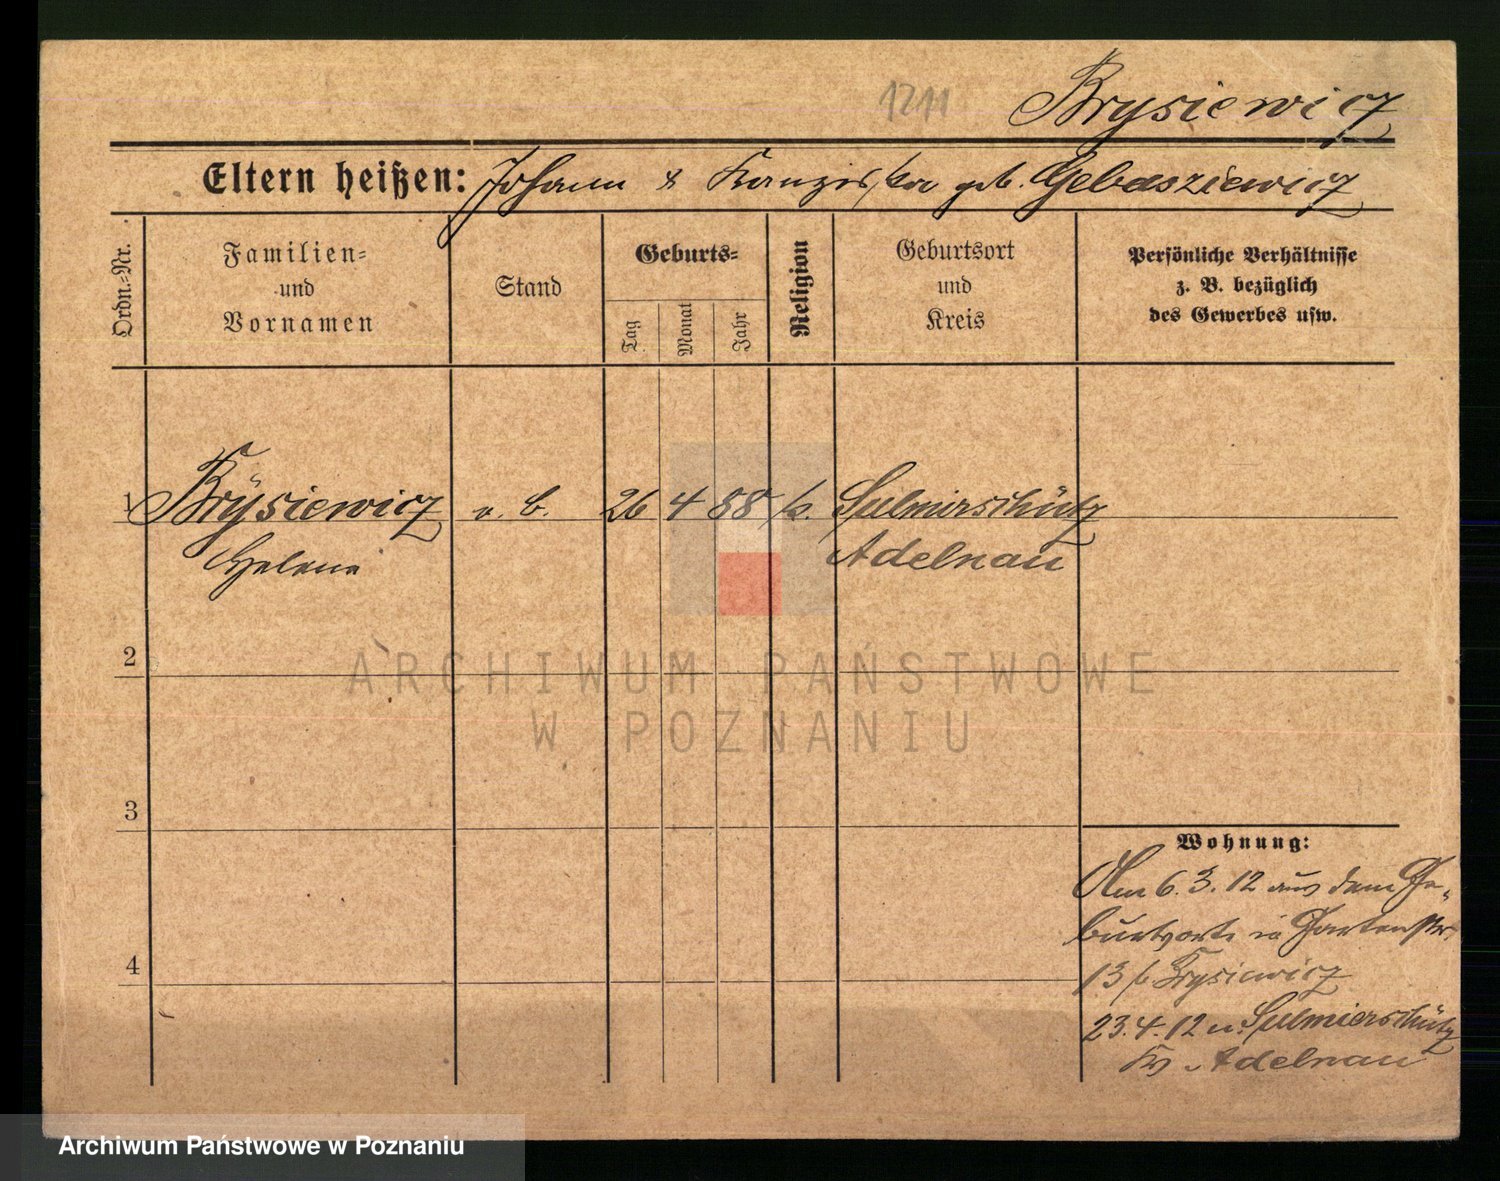 1211
Brysiewicz
Eltern heißen: Johann & Franziska geb. Gebasziewicz
Ordn.=Nr.
Familien=
und
Vornamen
Stand
Geburts=
Tag
Monat
Jahr
Religion
Geburtsort
und
Kreis
Persönliche Verhältnisse
z. B. bezüglich
des Gewerbes usw.
1 Brysiewicz b. 26 4 88 k. Sulmierschütz
Helene Adelnau
2
ARCHIWUM PAŃSTWOWE
W POZNANIU
3
Wohnung:
Am 6. 3. 12 aus dem Ge-
burtsorte in Gartenstr.
13 b Brysiewicz
4
23. 4. 12 n. Sulmierschütz
Kr Adelnau
Archiwum Państwowe w Poznaniu